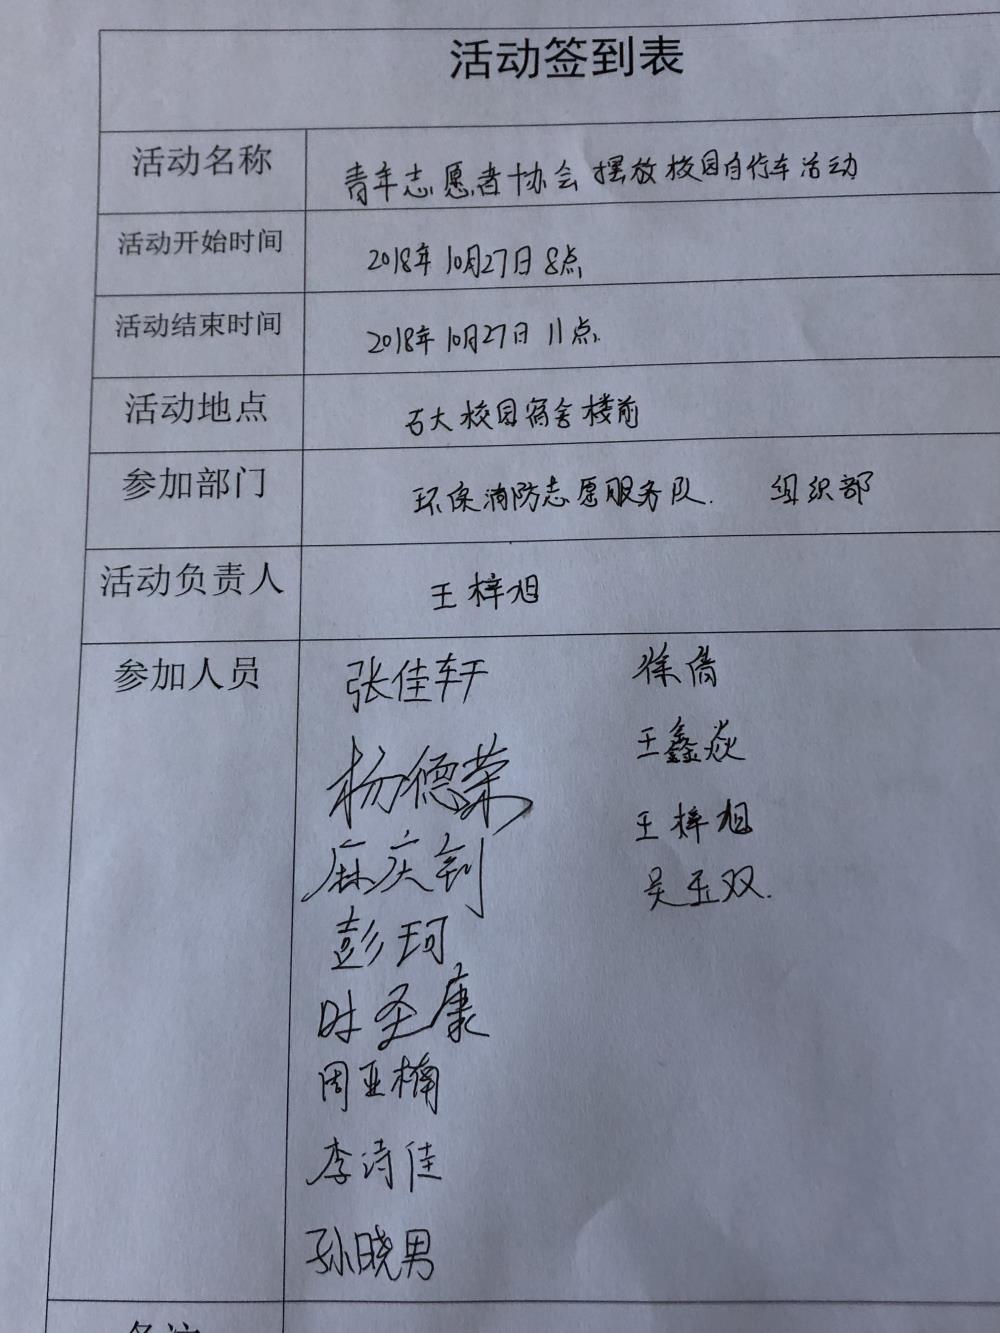 活动签到表
活动名称 青年志愿者协会摆放校园自行车活动
活动开始时间 2018年10月27日8点
活动结束时间 2018年10月27日11点
活动地点 石大校园宿舍楼前
参加部门 环保消防志愿服务队. 组织部
活动负责人 王梓旭
参加人员 张佳轩 徐倩
杨德荣 王鑫焱
麻庆钊 王梓旭
彭珂 吴玉双.
时圣康
周亚楠
李诗佳
孙晓男
备注